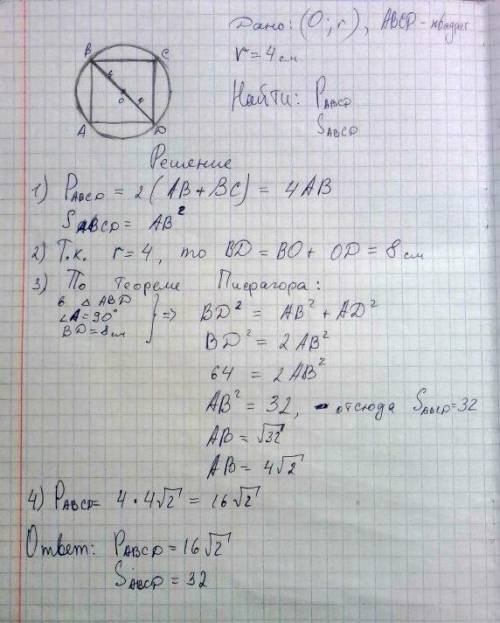 Дано: (O; r), ABCD - квадрат
r = 4 см
Найти: P_ABCD
S_ABCD
B C
4
O 4
A D
Решение
1) P_ABCD = 2(AB + BC) = 4AB
S_ABCD = AB²
2) Т.к. r = 4, то BD = BO + OD = 8 см
3) По теореме Пифагора:
в △ ABD
∠A = 90°
BD = 8 см } => BD² = AB² + AD²
BD² = 2AB²
64 = 2AB²
AB² = 32, - отсюда S_ABCD = 32
AB = √32
AB = 4√2
4) P_ABCD = 4 · 4√2 = 16√2
Ответ: P_ABCD = 16√2
S_ABCD = 32